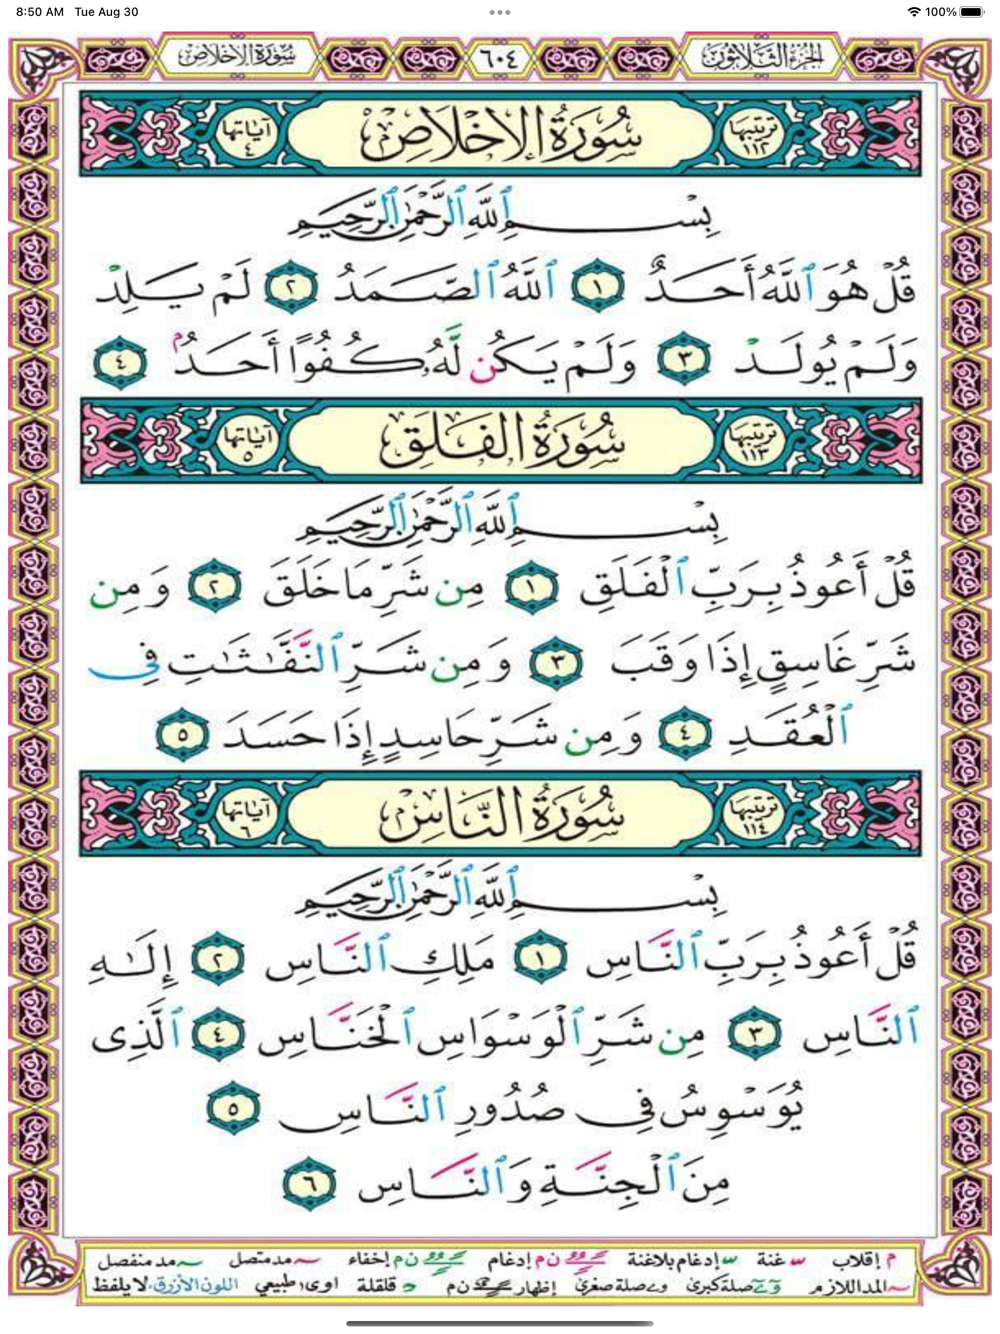 8:50 AM Tue Aug 30
100%
الجزء الثلاثون
٦٠٤
سورة الإخلاص
ترتيبها ١١٢ سُورَةُ الإِخْلَاصِ آياتها ٤
بِسْمِ ٱللَّهِ ٱلرَّحْمَٰنِ ٱلرَّحِيمِ
قُلْ هُوَ ٱللَّهُ أَحَدٌ ١ ٱللَّهُ ٱلصَّمَدُ ٢ لَمْ يَلِدْ
وَلَمْ يُولَدْ ٣ وَلَمْ يَكُن لَّهُۥ كُفُوًا أَحَدٌۢ ٤
ترتيبها ١١٣ سُورَةُ الفَلَقِ آياتها ٥
بِسْمِ ٱللَّهِ ٱلرَّحْمَٰنِ ٱلرَّحِيمِ
قُلْ أَعُوذُ بِرَبِّ ٱلْفَلَقِ ١ مِن شَرِّ مَا خَلَقَ ٢ وَمِن
شَرِّ غَاسِقٍ إِذَا وَقَبَ ٣ وَمِن شَرِّ ٱلنَّفَّٰثَٰتِ فِى
ٱلْعُقَدِ ٤ وَمِن شَرِّ حَاسِدٍ إِذَا حَسَدَ ٥
ترتيبها ١١٤ سُورَةُ النَّاسِ آياتها ٦
بِسْمِ ٱللَّهِ ٱلرَّحْمَٰنِ ٱلرَّحِيمِ
قُلْ أَعُوذُ بِرَبِّ ٱلنَّاسِ ١ مَلِكِ ٱلنَّاسِ ٢ إِلَٰهِ
ٱلنَّاسِ ٣ مِن شَرِّ ٱلْوَسْوَاسِ ٱلْخَنَّاسِ ٤ ٱلَّذِى
يُوَسْوِسُ فِى صُدُورِ ٱلنَّاسِ ٥
مِنَ ٱلْجِنَّةِ وَٱلنَّاسِ ٦
م إقلاب غنة إدغام بلاغنة ن م إدغام ن م إخفاء مد متصل مد منفصل
المد اللازم صلة كبرى صلة صغرى إظهار ن م قلقلة اوى طبيعي اللون الأزرق لا يلفظ